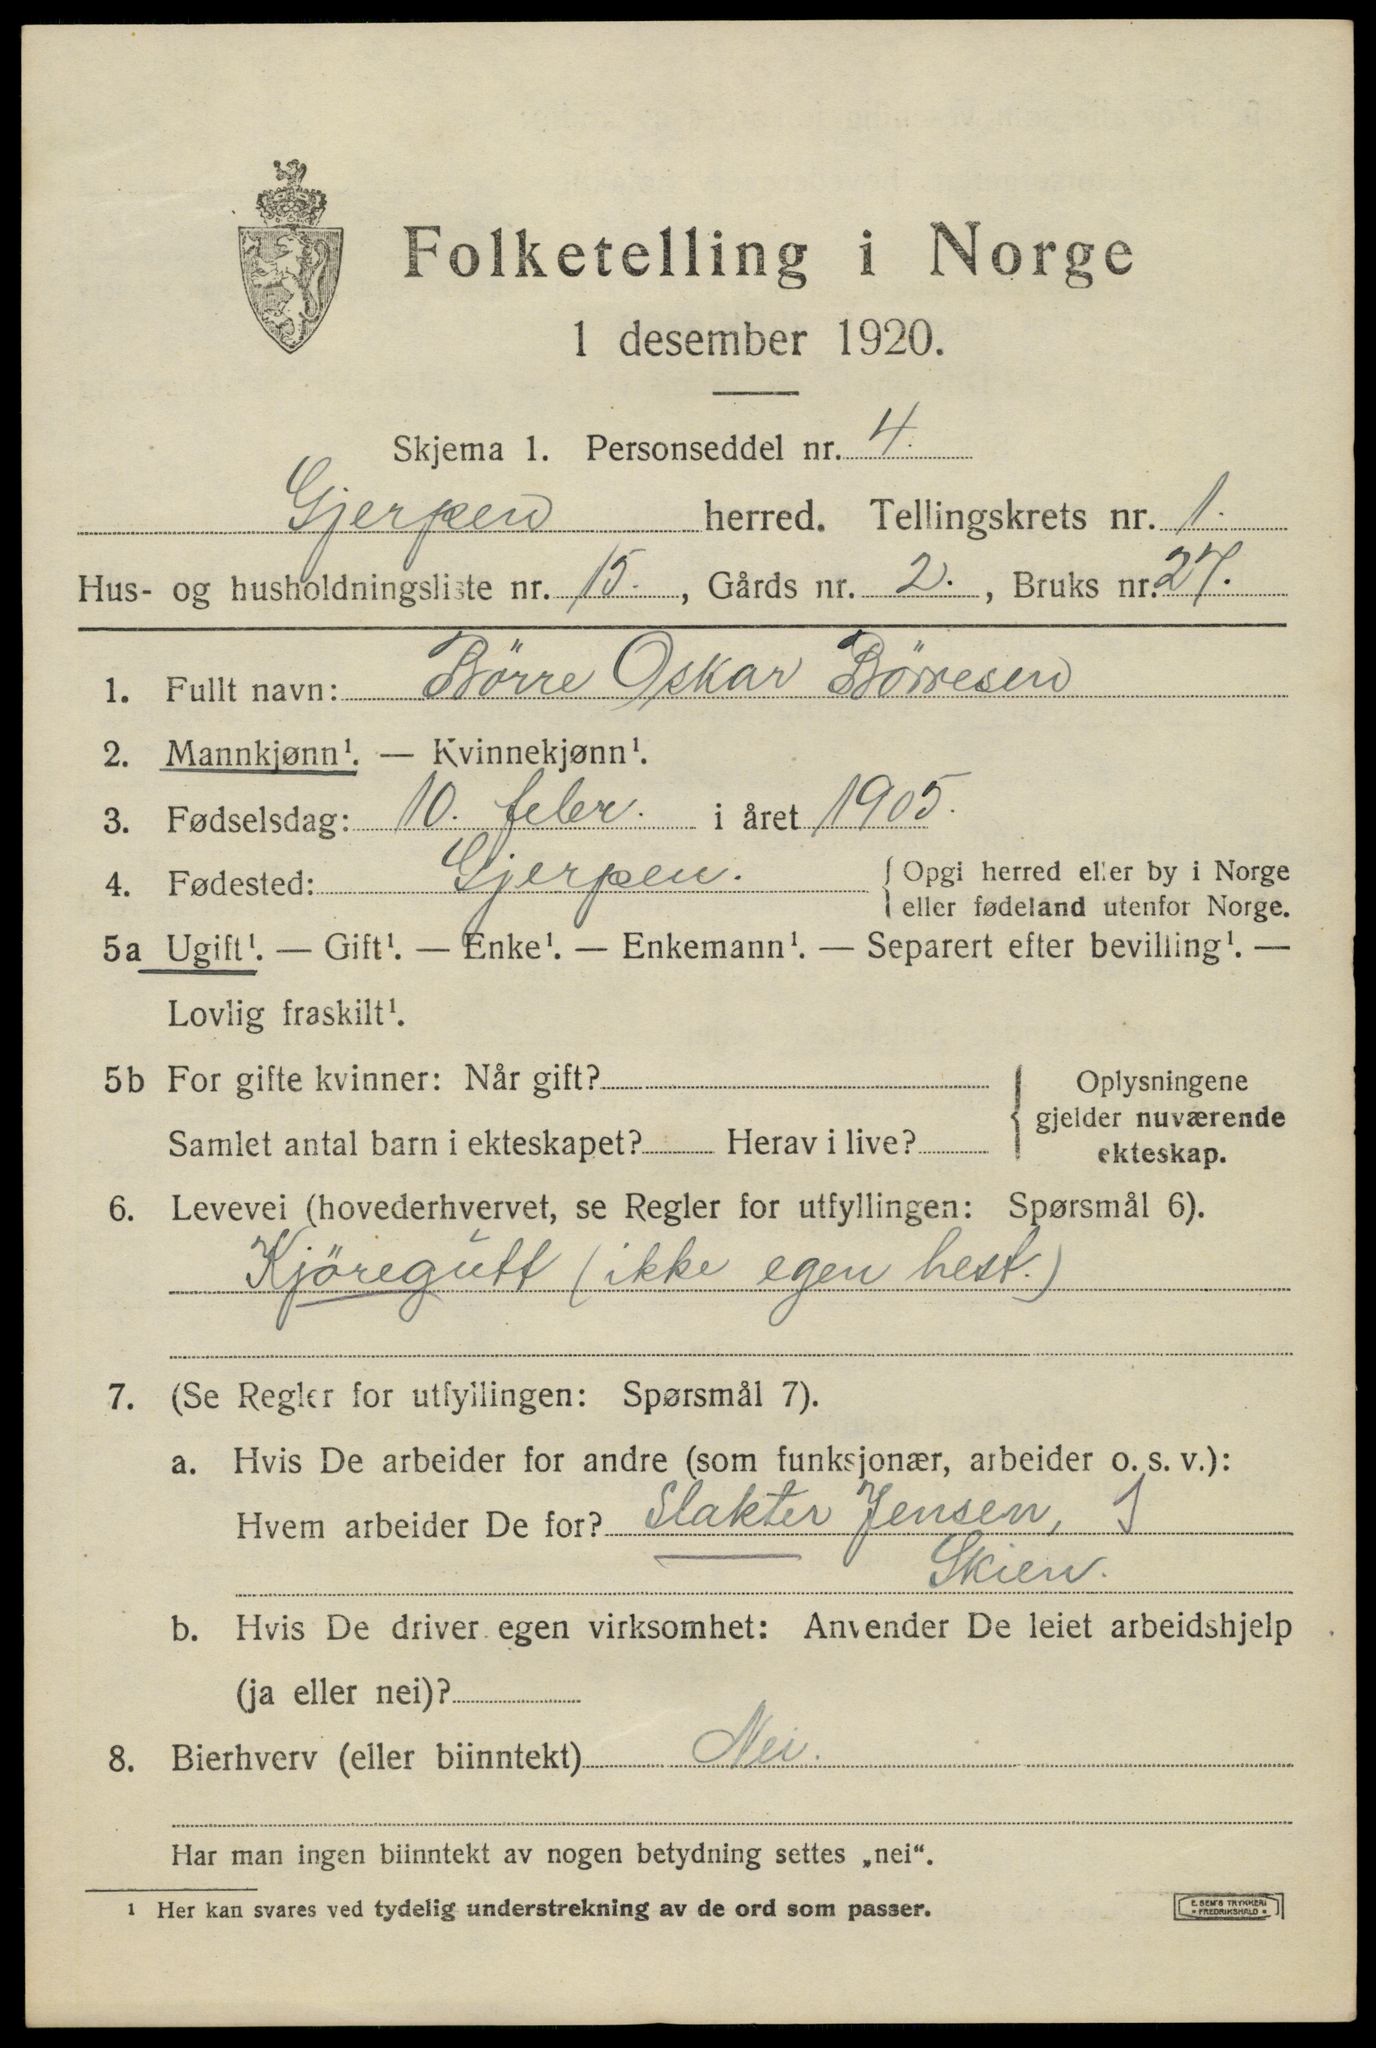 Folketelling i Norge
1 desember 1920.
Skjema 1. Personseddel nr. 4.
Gjerpen herred. Tellingskrets nr. 1.
Hus- og husholdningsliste nr. 15., Gårds nr. 2., Bruks nr. 27.
1. Fullt navn: Börre Oskar Börresen
2. Mannkjønn¹. — Kvinnekjønn¹.
3. Fødselsdag: 10. feber. i året 1905.
4. Fødested: Gjerpen. { Opgi herred eller by i Norge
eller fødeland utenfor Norge.
5a Ugift¹. — Gift¹. — Enke¹. — Enkemann¹. — Separert efter bevilling¹. —
Lovlig fraskilt¹.
5b For gifte kvinner: Når gift? { Oplysningene
gjelder nuværende
Samlet antal barn i ekteskapet? Herav i live? ekteskap.
6. Levevei (hovederhvervet, se Regler for utfyllingen: Spørsmål 6).
Kjöregutt (ikke egen hest.)
7. (Se Regler for utfyllingen: Spørsmål 7).
a. Hvis De arbeider for andre (som funksjonær, arbeider o. s. v.):
Hvem arbeider De for? Slakter Jensen,
Skien.
b. Hvis De driver egen virksomhet: Anvender De leiet arbeidshjelp
(ja eller nei)?
8. Bierhverv (eller biinntekt) Nei.
Har man ingen biinntekt av nogen betydning settes „nei“.
¹ Her kan svares ved tydelig understrekning av de ord som passer.
E. SEM'S TRYKKERI
• FREDRIKSHALD •